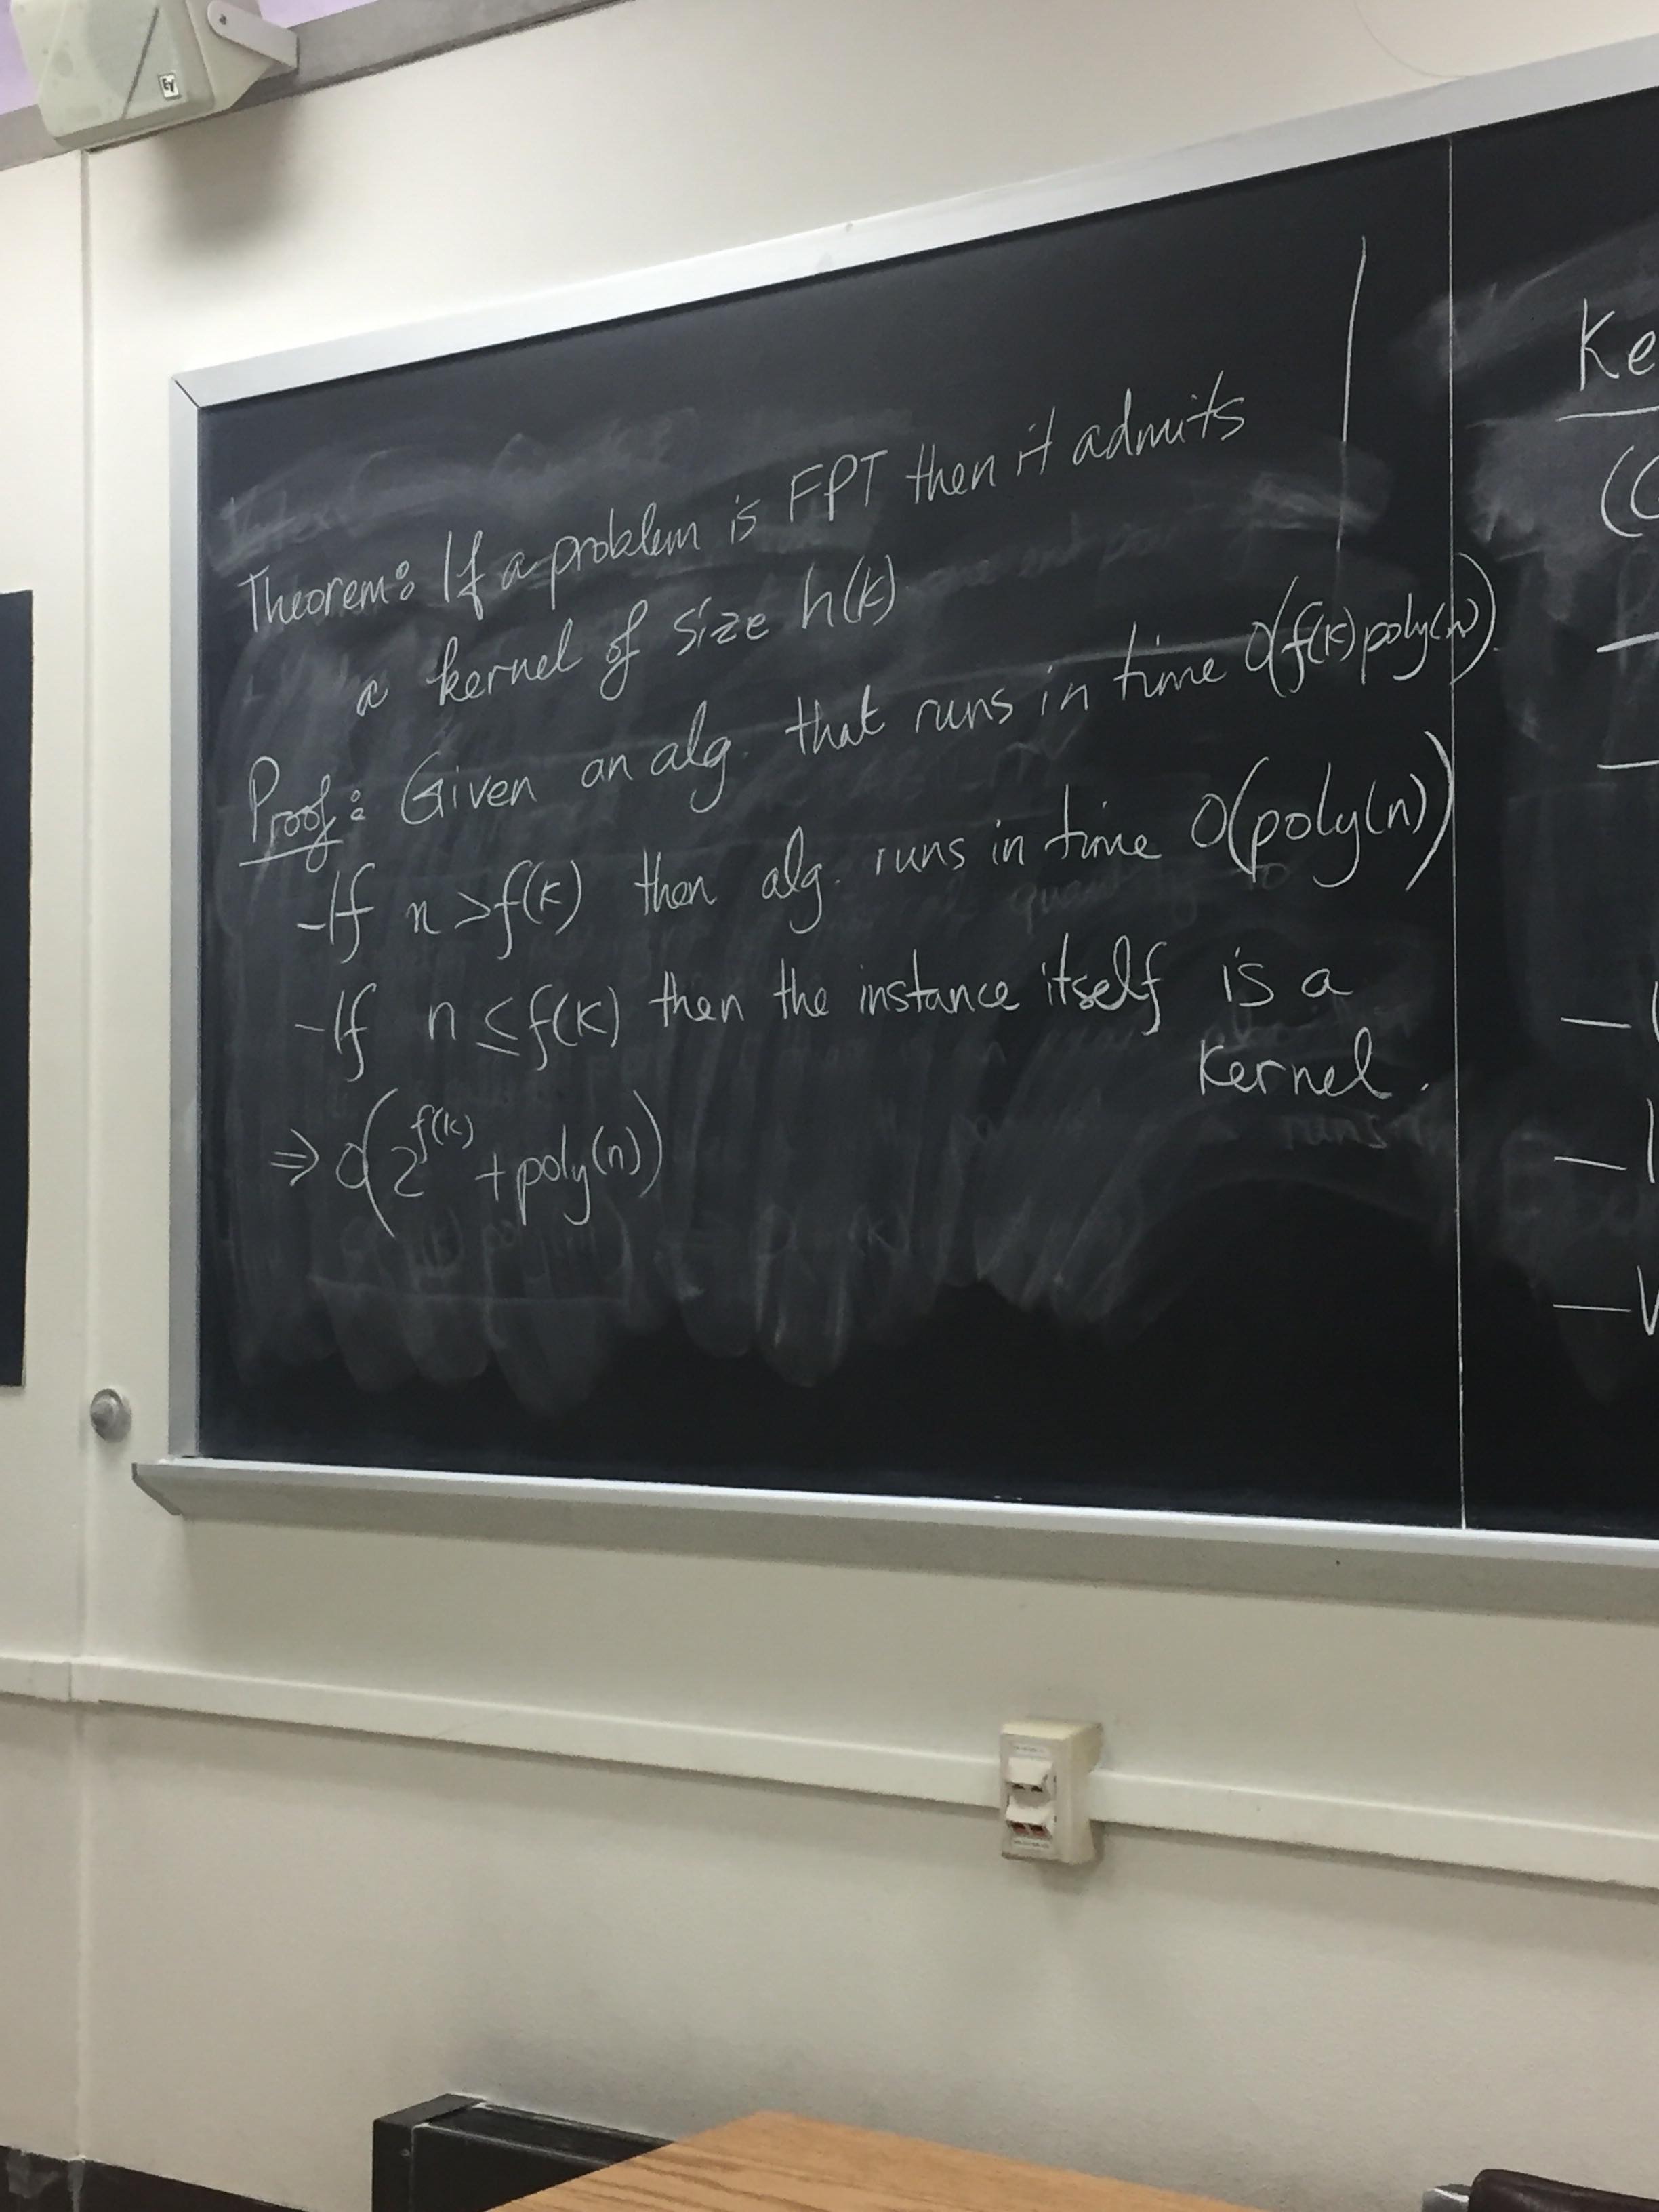 EV
Theorem: If a problem is FPT then it admits
a kernel of size h(k)
Proof: Given an alg. that runs in time O(f(k)poly(n))
-If n > f(k) then alg. runs in time O(poly(n))
-If n ≤ f(k) then the instance itself is a
kernel.
⇒ O(2^f(k) + poly(n))
Ke
(C